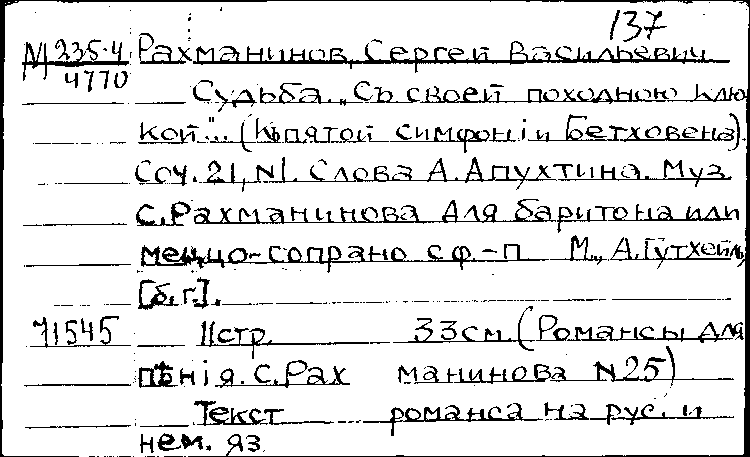 137
М 235-4 Рахманинов, Сергей Васильевич
4770
Судьба. „Съ своей походною клю
кой"... (Къ пятой симфоніи Бетховена).
Соч. 21, N1. Слова А. Апухтина. Муз
С. Рахманинова Для баритона или
меццо-сопрано с ф.-п М., А. Гутхейль,
[б.г.].
71545 11стр. 33см. (Романсы для
пѣнія. С. Рах манинова N25)
Текст романса на рус. и
нем. яз